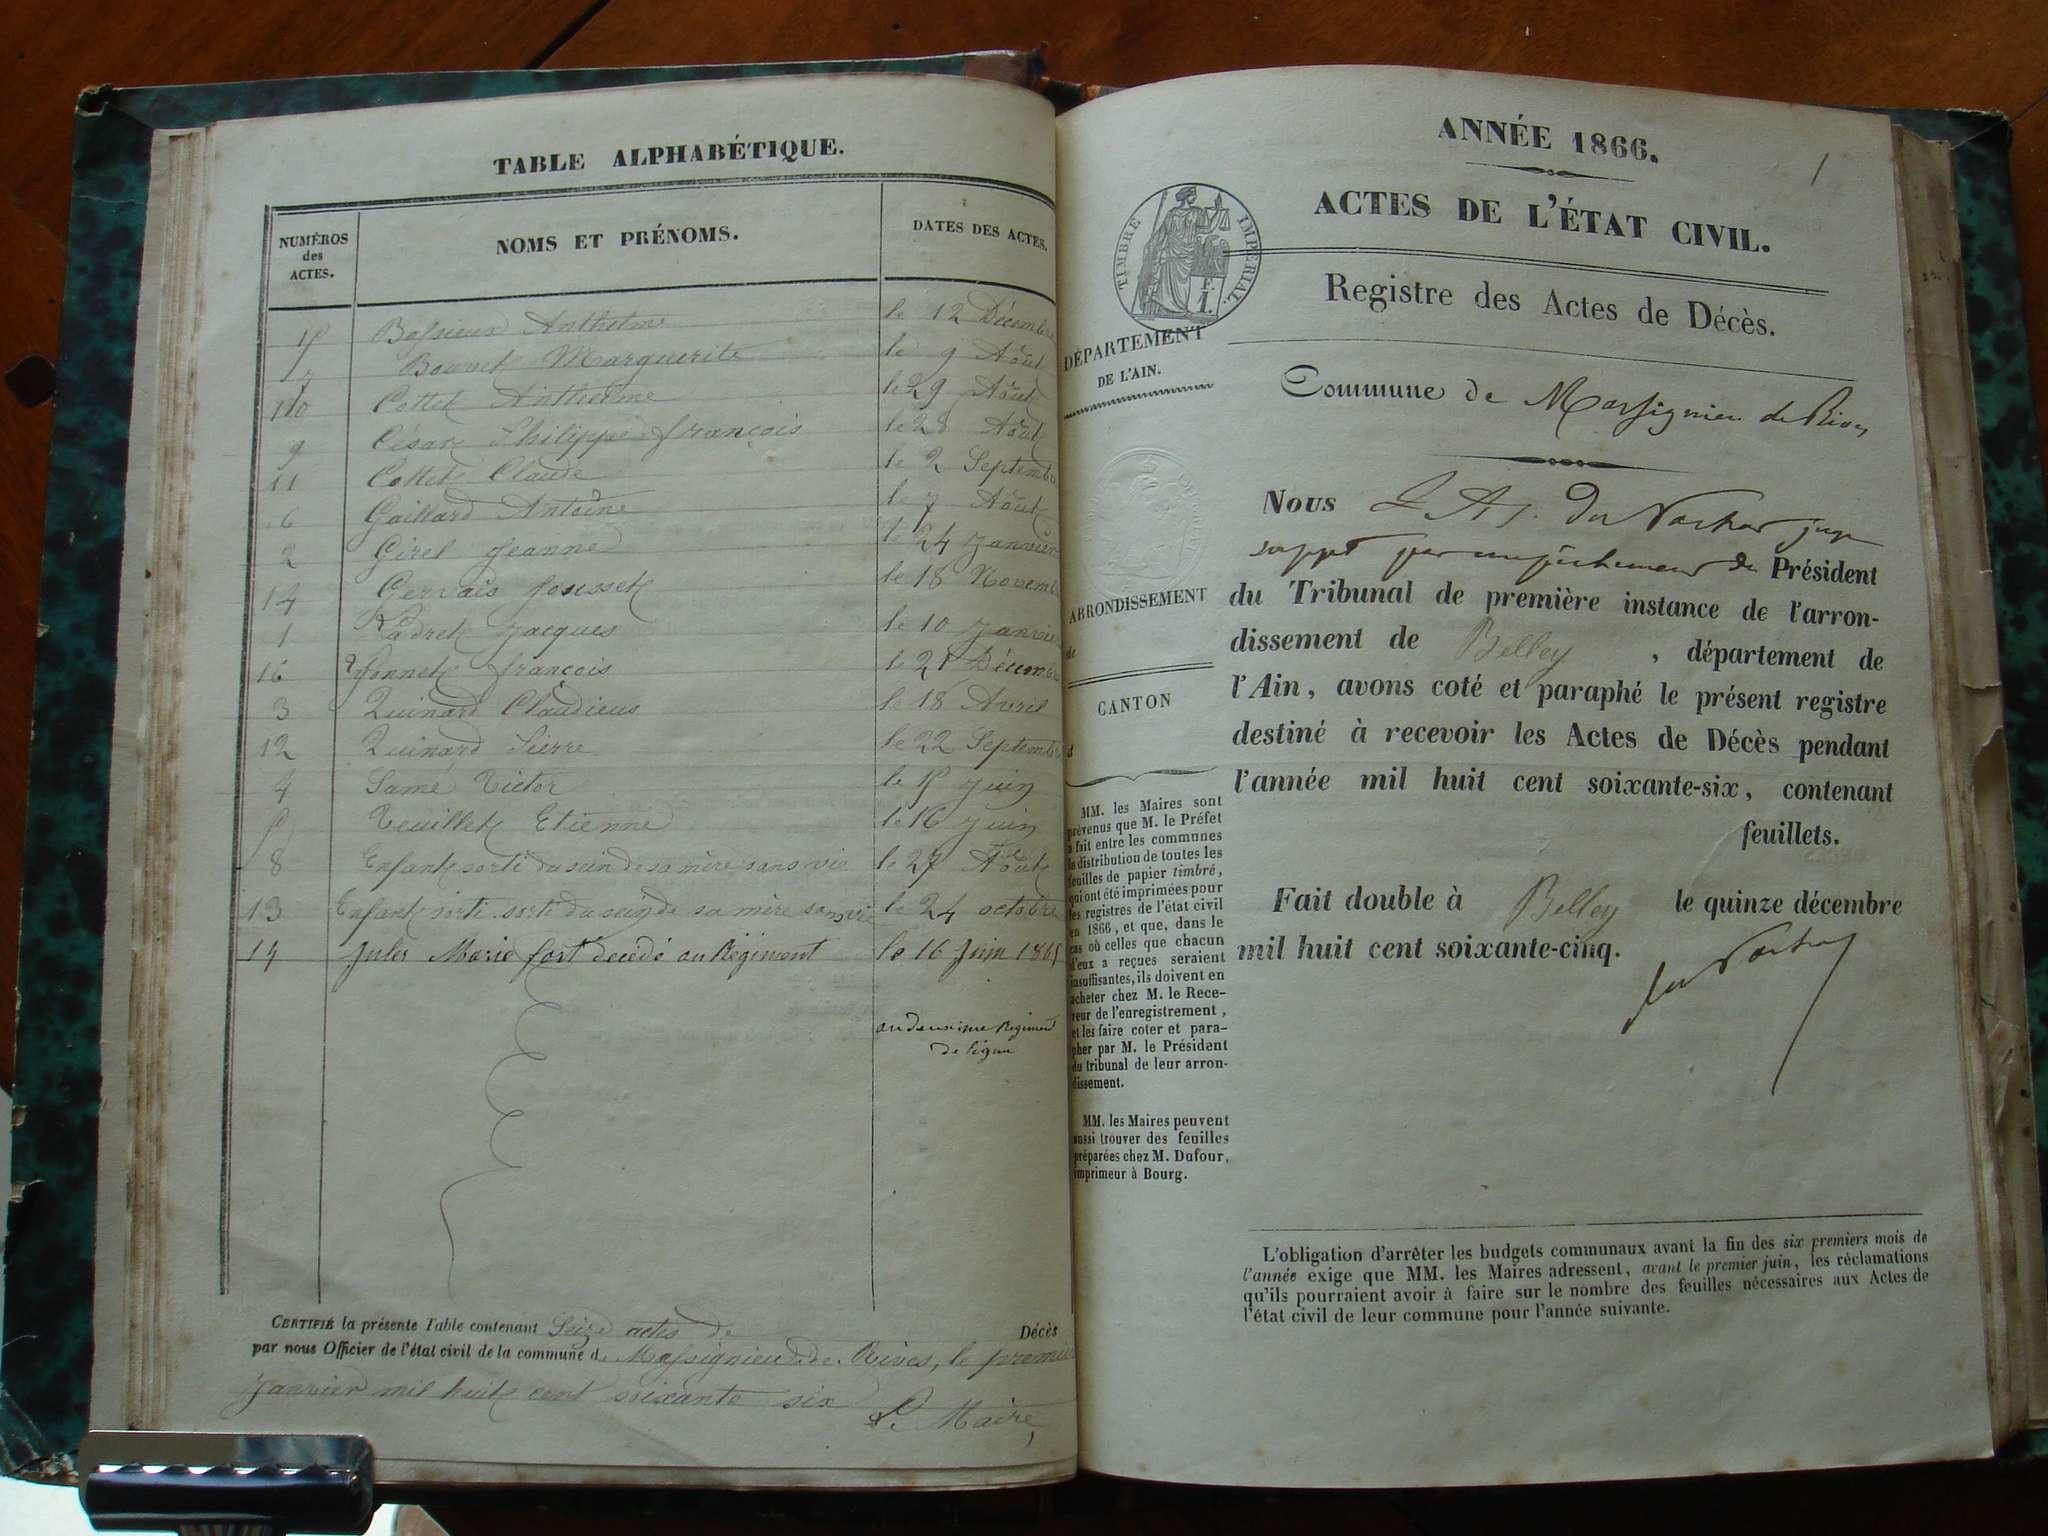 TABLE ALPHABÉTIQUE.
NUMÉROS des ACTES. NOMS ET PRÉNOMS. DATES DES ACTES.
15 Bassieux Anthelme le 12 Décembre
7 Bonnet Marguerite le 9 Août
10 Cottet Anthelme le 29 Août
9 César Philippe françois le 28 Août
11 Collet Claude le 2 Septembre
6 Gaillard Antoine le 7 Août
2 Girel Jeanne le 24 Janvier
14 Gervais le 18 Novemb
1 Jacques le 10 Janvier
16 françois le 21 Décembre
3 Quinard Claudieus le 18 Avril
12 Quinard Pierre le 22 Septembre
4 Samé Victor le Juin
5 Teuillet Etienne le 16 Juin
8 Enfant sorti du sein de sa mère sans vie le 27 Août
13 Enfant sorti sorti du sein de sa mère sans vie le 24 octobre
Jules Marie fort décédé au Régiment le 16 Juin 1865
au deuxième Régiment
de ligne
CERTIFIÉ la présente Table contenant Seize actes de Décès
par nous Officier de l'état civil de la commune d Massignieu de Rives, le premier
Janvier mil huit cent soixante six
Le Maire,
ANNÉE 1866.
1
ACTES DE L'ÉTAT CIVIL.
TIMBRE IMPÉRIAL.
F. 1.
Registre des Actes de Décès.
DÉPARTEMENT
DE L'AIN.
Commune de Massignieu de Rives
Nous juge
suppt par empêchement du Président
du Tribunal de première instance de l'arron-
dissement de Belley , département de
l'Ain, avons coté et paraphé le présent registre
destiné à recevoir les Actes de Décès pendant
l'année mil huit cent soixante-six, contenant
feuillets.
Fait double à Belley le quinze décembre
mil huit cent soixante-cinq.
ARRONDISSEMENT
de
CANTON
d
MM. les Maires sont
prévenus que M. le Préfet
a fait entre les communes
la distribution de toutes les
feuilles de papier timbré,
qui ont été imprimées pour
les registres de l'état civil
en 1866, et que, dans le
cas où celles que chacun
d'eux a reçues seraient
insuffisantes, ils doivent en
acheter chez M. le Rece-
veur de l'enregistrement,
et les faire coter et para-
pher par M. le Président
du tribunal de leur arron-
dissement.
MM. les Maires peuvent
aussi trouver des feuilles
préparées chez M. Dufour,
imprimeur à Bourg.
L'obligation d'arrêter les budgets communaux avant la fin des six premiers mois de
l'année exige que MM. les Maires adressent, avant le premier juin, les réclamations
qu'ils pourraient avoir à faire sur le nombre des feuilles nécessaires aux Actes de
l'état civil de leur commune pour l'année suivante.